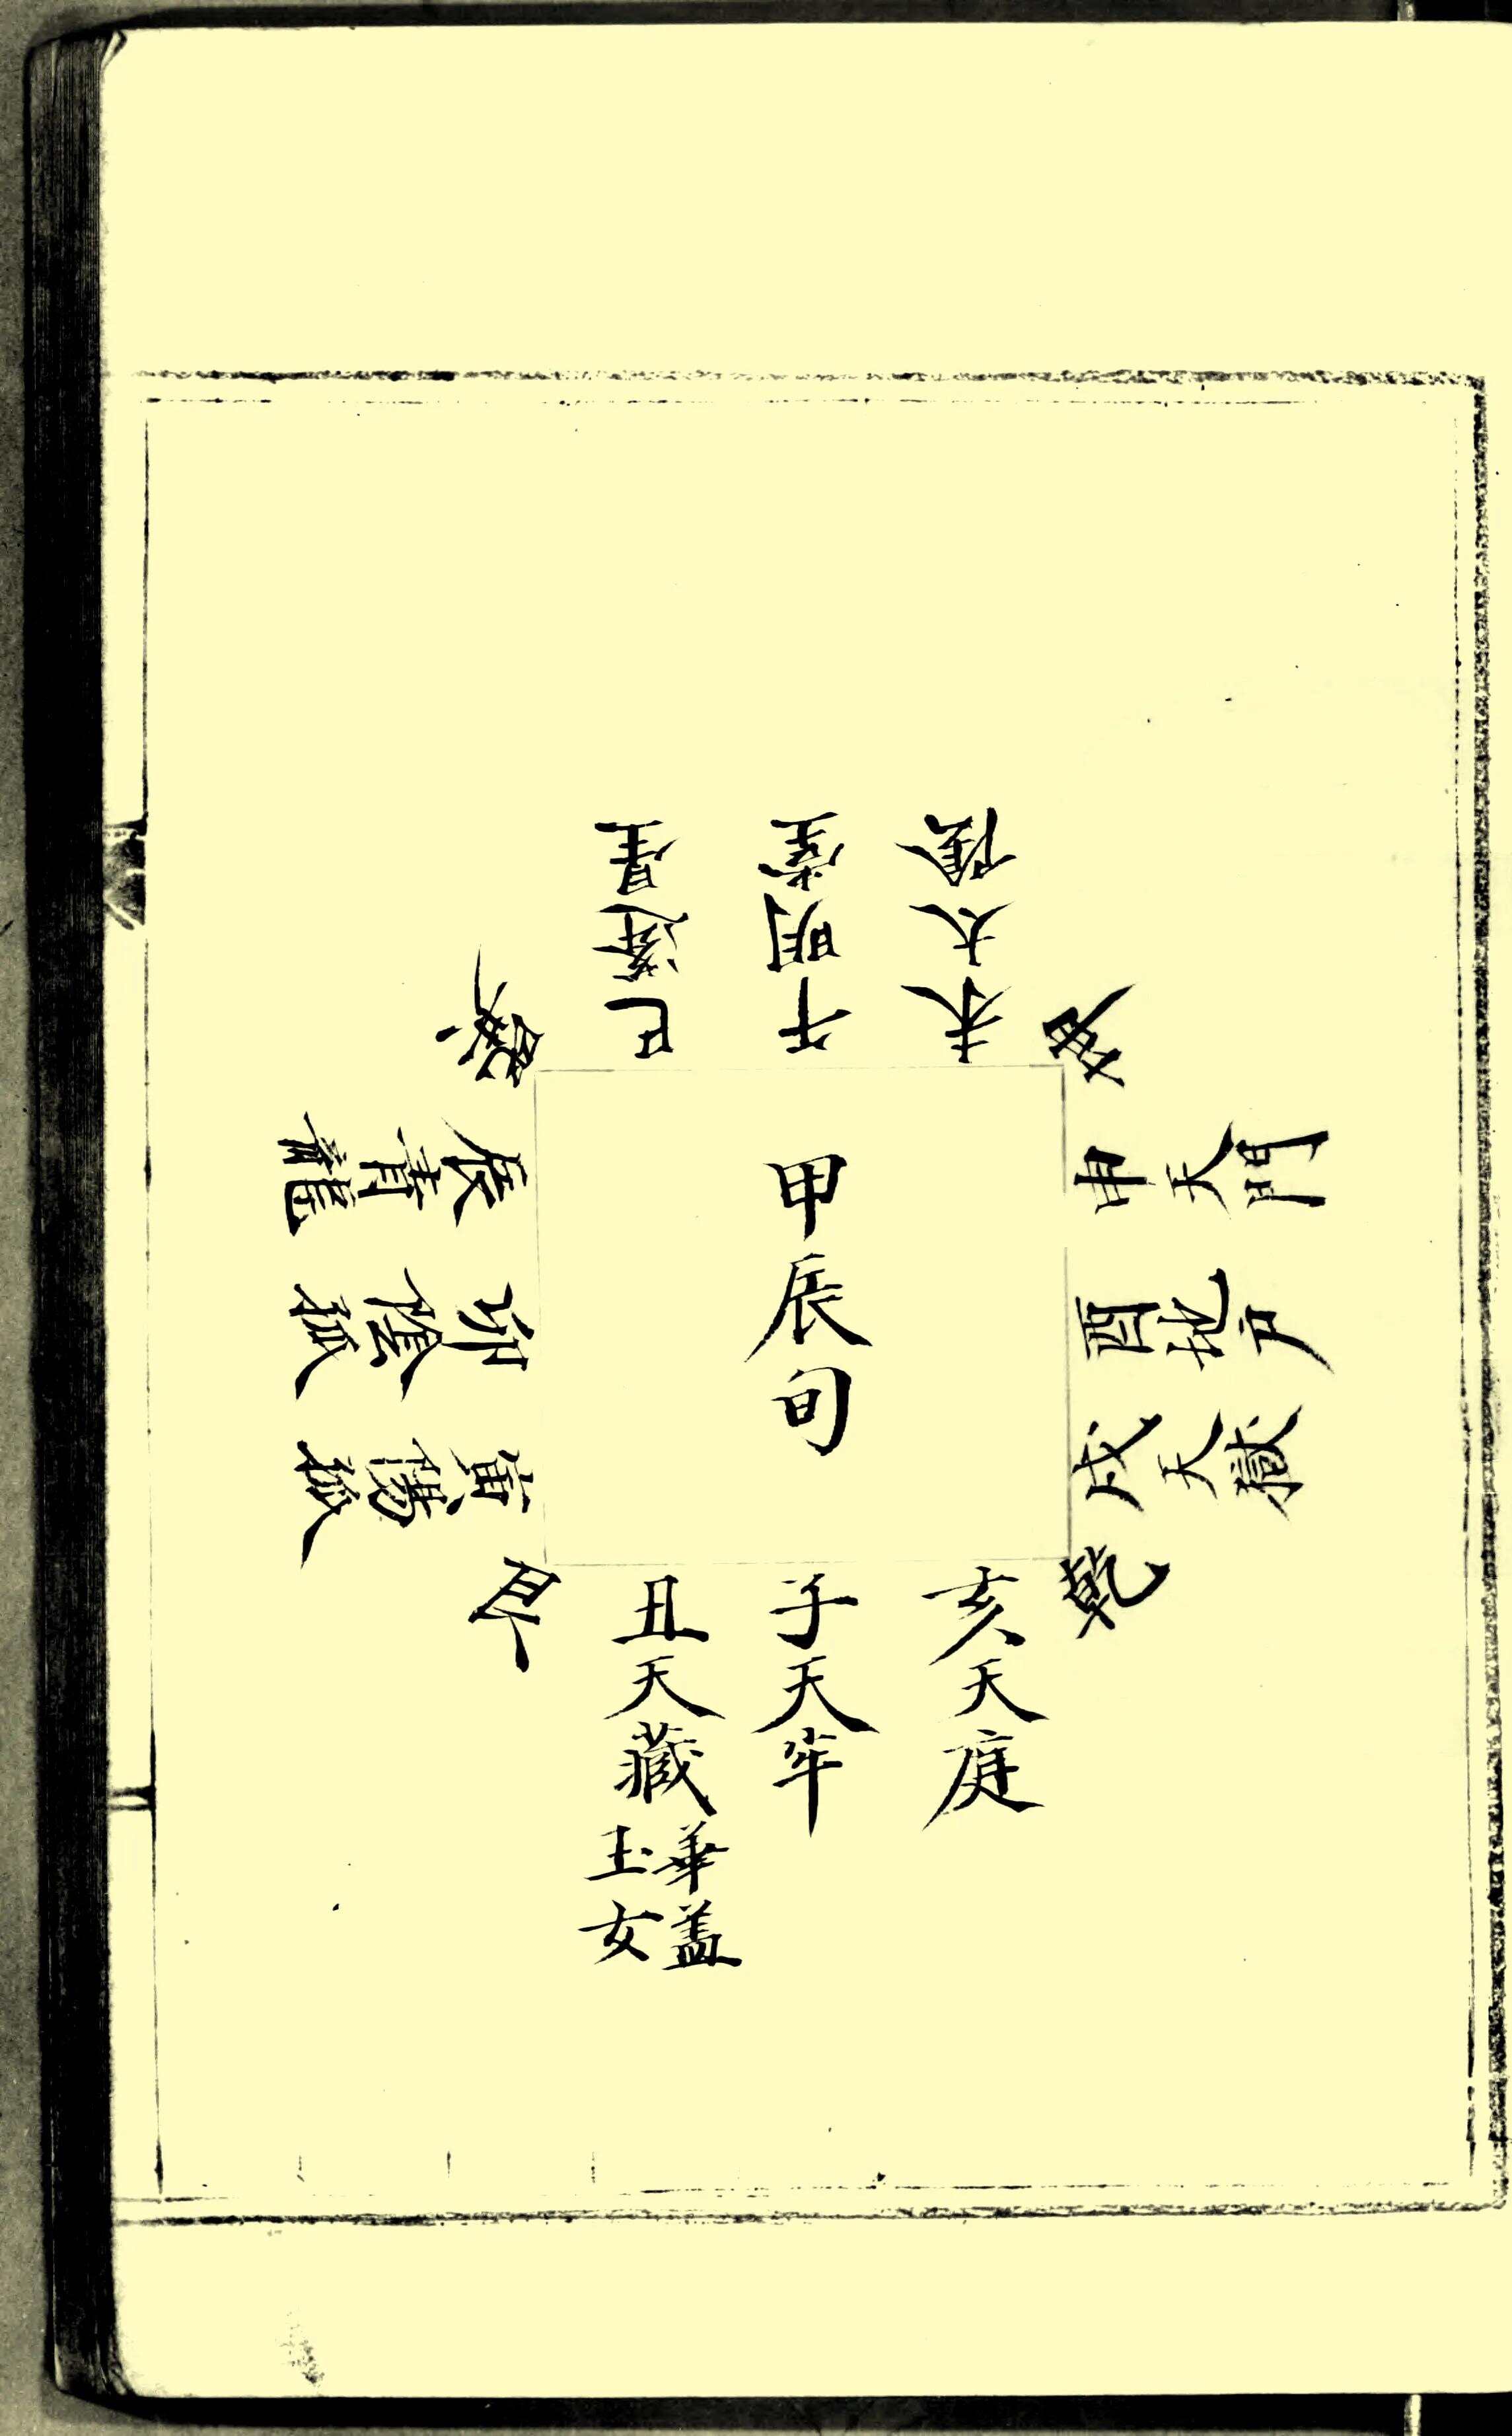 甲辰旬
巽
巳蓬星
午明堂
未太陰
坤
申天門
酉地户
戌天獄
乾
亥天庭
子天牢
丑天藏
華蓋
玉女
艮
寅陽孤
卯陰孤
辰青龍